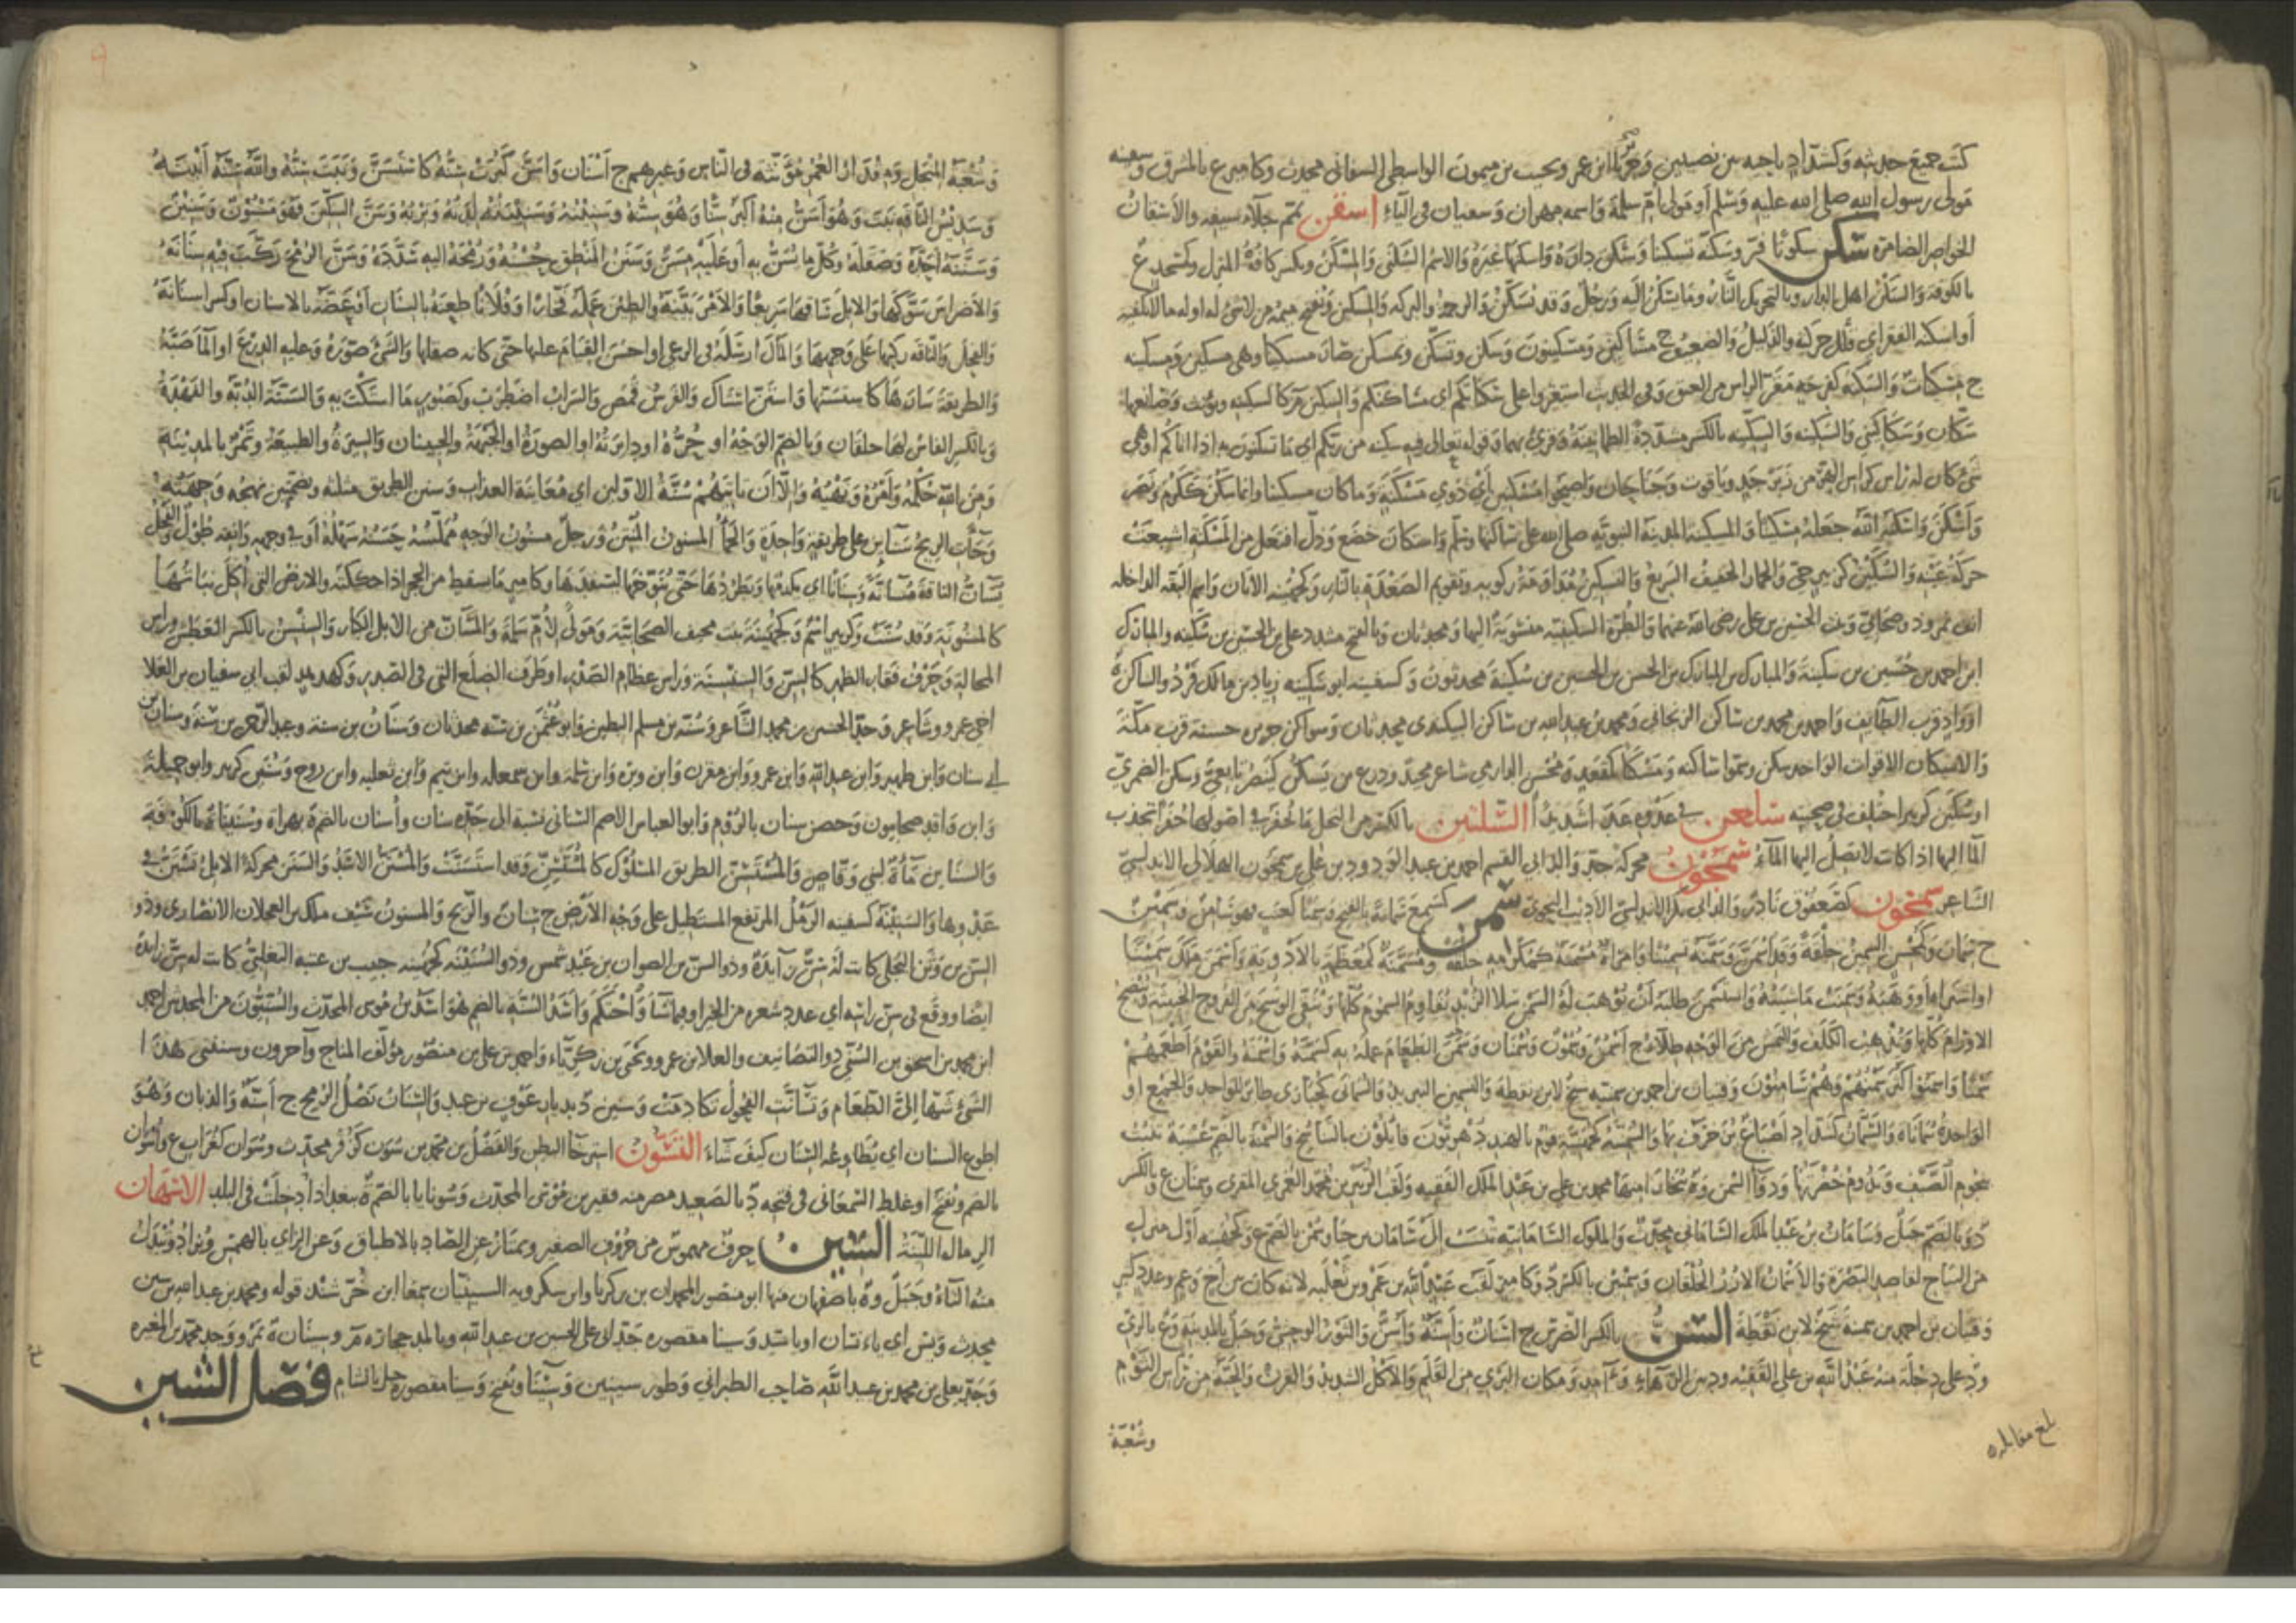 كتب جميع حديثه وكشداد باجيه من نصيبين وعزيز ابن عمر ويحيى بن ميمون الواسطي السفاني محدث وكامير ع بالمشرق وسفينه
مولى رسول الله صلى الله عليه وسلم او مولى ام سلمة واسمه مهران وسفيان في الياء اسفن تمم جلاء سيفه والاسفان
الخواصر الضامرة سكن سكونا قر وسكنه تسكينا وسكن داره واسكنها غيره والاسم السكنى والمسكن وتكسر كافه المنزل وكمسجد ع
بالكوفة والسكن اهل الدار وبالتحريك النار وما يسكن اليه ورجل وقد يسكن والرحمة والبركة والمسكين وتفتح ميمه من لا شئ له او له ما لا يكفيه
او اسكنه الفقر اي قلل حركته والذليل والضعيف ج مساكين ومسكينون وسكن وتسكن وتمسكن صار مسكينا وهي مسكين ومسكينه
ج مسكينات والسكنه كفرحه مقر الراس من العنق وفي الحديث استقروا على سكناتكم اي مساكنكم والسكين م كالسكينه ويؤنث وصانعها
سكان وسكاكيني والسكينه والسكينه بالكسر مشددة الطمانينة وقرئ بهما وقوله تعالى فيه سكينه من ربكم اي ما تسكنون به اذا اتاكم او هي
شئ كان له راس كراس الهر من زبرجد وياقوت وجناحان واصبحوا مساكين اي ذوي مسكنة وما كان مسكينا وانما سكن ككرم ونصر
واسكن واسكنه الله جعله مسكينا والمسكينه المدينة النبوية صلى الله على ساكنها وسلم واستكان خضع وذل افتعل من المسكنه اشبعت
حركة عينه والسكين كزبير حي والحمار الخفيف السريع والتسكين مداومة ركوبه وتقويم الصعدة بالنار وكجهينه الاتان واسم البقه الداخله
انف نمروذ وصحابي وبنت الحسين بن علي رضي الله عنهما والطرة السكينيه منسوبة اليها ومحدثان وبالفتح مشدد علي بن الحسين بن سكينه والمبارك
ابن احمد بن حسين بن سكينة والمبارك بن المبارك بن الحسن بن الحسين بن سكينة محدثون وكسفينه ابو سكينه زياد بن مالك فرد والساكن ة
او واد قرب الطايف واحمد بن محمد بن ساكن الزنجاني ومحمد بن عبدالله بن ساكن البيكندي محدثان وسواكن جزيره حسنة قرب مكة
والاسكان الاقوات الواحد سكن وسموا ساكنه ومسكنا كمقعد ومحسن الدارمي شاعر مجيد ودرع بن يسكن كينصر تابعي وسكن الضمري
او سكين كزبير اختلف في صحبته سلعن في عدوه عدا شديدا السلتين بالكسر من النخل ما يحفر في اصولها حفر تجذب
الما اليها اذا كانت لا يصل اليها الماء سمجون محركة جد والد ابي القسم احمد بن عبد الودود بن علي بن سمجون الهلالي الاندلسي
الشاعر سمحون كصعفوق نادر والد ابي بكر الاندلسي الاديب النحوي سمن كسمع سمانة بالفتح وسمنا كعنب فهو سامن وسمين
ج سمان وكمحسن السمين خلقة وقد اسمن وسمنه تسمينا وامراة مسمنة كمكرمه خلقة ومسمنة كمعظمة بالادوية واسمن ملك سمينا
او اشتراه او وهبه وسمنت ماشيته واستسمن طلب ان يوهب له السمن سلاء الزبد يقاوم السموم كلها وينقي الوسخ من القروح الخبيثه وينضج
الاورام كلها ويذهب الكلف والنمش من الوجه طلاء ج اسمن وسمون وسمنان وسمن الطعام عمله به كسمنه واسمنه والقوم اطعمهم
سمنا واسمنوا كثر سمنهم وهم سامنون وفتيان بن احمد بن سمنيه شيخ لابن نقطة والتسمين التبريد والسمانى كحبارى طائر للواحد والجمع او
الواحدة سماناة والسمان كشداد اصباغ يزخرف بها والسمنيه كعرنيه قوم بالهند دهريون قايلون بالتناسخ والسمنة بالضم عشبة تنبت
بنجوم الصيف وتدوم خضرتها ودواء السمن وة ببخارا منها محمد بن علي بن عبد الملك الفقيه ولقب الزبير بن محمد العمري المقري وسمنان ع وبالكسر
د وبالضم جبل وسامان بن عبد الملك الساماني محدث والملوك السامانيه تنسب الى سامان بن حيا وسمن بالضم ع وكجهينه اول منزل
من النباج لقاصد البصرة والاسمان الازر الخلقان وسمنين بالكسر د وكامير لقب عبد الله بن عمرو بن ثعلبه لانه كان بن اخ وعم وعدد كثير
وفتيان بن احمد بن سمنية شيخ لابن نقطة السن بالكسر الضرس ج اسنان واسنة واسن والثور الوحشي وجبل بالمدينة وع بالري
ود على دجلة منه عبد الله بن علي الفقيه ود بين الرهاء وامد ومكان البري من القلم والاكل الشديد والقرن والحبة من راس الثوم
بلغ مقابله
وشعبة
وشعبة المنجل وة مقدار العمر مؤنثه في الناس وغيرهم ج اسنان واسن كبرت سنه كاستسن ونبت سنه والله سنه انبته
وسديس الناقه نبت وهو اسن منه اكبر سنا وهو سنه وسنينه وسنينته لدته وتربه وسن السكين فهو مسنون وسنين
وسننه احده وصقله وكل ما يسن به او عليه مسن وسنن المنطق حسنه ورمحه اليه سدده وسن الرمح ركب فيه سنانه
والاضراس سوكها والابل ساقها سريعا والامر بينه والطين عمله فخارا وفلانا طعنه بالسنان او عضه بالاسنان او كسر اسنانه
والفحل والناقه ركبها على وجهها والمال ارسله في الرعي او احسن القيام عليها حتى كانه صقلها والشئ صوره وعليه الدرع او الماء صبه
والطريقة سار ها كاستسنها واستن استاك والفرس قمص والسراب اضطرب وكصبور ما استكت به والسنة الدبه والفهدة
وبالكسر الفاس لها خلفان وبالضم الوجه او حره او دايرته او الصورة او الجبهة والجبينان والسيرة والطبيعة وتمر بالمدينة
ومن الله حكمه وامره ونهيه والا ان تاتيهم سنة الاولين اي معاينة العذاب وسنن الطريق مثلثه وبضمتين نهجه وجهته
وجآت الريح سناين على طريقة واحدة والحمأ المسنون المنتن ورجل مسنون الوجه مملسه حسنه سهله او في وجهه وانفه طول والفحل
يسان الناقة مسانة وسنانا اي يكدمها ويطردها حتى ينوخها ليسفدها وكامير ما سقط من الحجر اذا حككته والارض التي اكل نباتها
كالمسنونة وقد سنت وكزبير اسم وكجهينة بنت مخنف الصحابية ومولى لام سلمة والمسان من الابل الكبار والسنسن بالكسر العطش وراس
المحالة وحرف فقار الظهر كالسن والسنسنة وراس عظام الصدر او طرف الضلع التي في الصدر وكهدهد لقب ابي سفيان بن العلا
اخي عمرو وشاعر وجد الحسين بن محمد الشاعر وسنة بن مسلم البطين وابو عثمن بن سنه محدثان وسنان بن سنة وعبد الرحمن بن سنة وسنان بن
ابي سنان وابن ظهير وابن عبدالله وابن عمرو وابن مقرن وابن وبرة وابن سلمة وابن سمعله وابن تيم وابن ثعلبه وابن روح وسنين كزبير وابو جميلة
وابن واقد صحابيون وحصن سنان بالروم وابو العباس الاصم السناني نسبة الى جده سنان واسنان بالضم ة بهراة وسنيناة بالكوفة
والسناين ماءة لبني وقاص والمستسن الطريق المسلوك كالمستسن وقد استسنت والمستن الاسد والسنن محركة الابل تستن في
عدوها والسنينة كسفينه الرمل المرتفع المستطيل على وجه الارض ج سنان والريح والمسنون سيف مالك بن العجلان الانصاري وذو
السن بن وثن البجلي كانت له سن زآيدة وذو السن بن الصوان بن عبد شمس وذو السنينه كجهينه حبيب بن عتبه الثعلبي كانت له سن زايدة
ايضا ووقع في سن راسه اي عدد شعره من الخير او فيما شاء واحتكم واسد السنة بالضم هو اسد بن موسى المحدث والسنيون من المحدثين احمد
ابن محمد بن اسحق بن السني ذو التصانيف والعلا بن عمرو ويحيى بن زكرياء واحمد بن علي بن منصور مؤلف المنهاج وآخرون وسنني هذا
الشئ شهى الي الطعام وتسانت الفحول تكادمت وسنين د بديار عوف بن عبد والسنان نصل الرمح ج اسنة والذبان وهو
اطوع السنان اي يطاوعه السنان كيف شاء التسون استرخا البطن والفضل بن محمد بن سون كزفر محدث وسوان كغراب ع واسوان
بالضم وتفتح او غلط السمعاني في فتحه د بالصعيد بمصر منه فقير بن موسى المحدث وسونايا بالضم ة ببغداد ادخلت في البلد الاسهان
الرمال اللينة السين حرف مهموس من حروف الصفير ويمتاز عن الصاد بالاطباق وعن الزاي بالهمس ويزاد وتبدل
منه التاء وجبل وة باصفهان منها ابو منصور المحمدان بن زكريا وابن سكرويه السينيان سمعا ابن خرشيذ قوله ومحمد بن عبدالله بن سين
محدث ويس اي ياانسان او يا سيد وسينا مقصوره جد ابي علي الحسين بن عبدالله وبالمد حجارة م وسينان ة بمرو وجد محمد بن المغيره
وجد يعلى بن محمد بن عبدالله صاحب الطبراني وطور سينين وسينا وتفتح وسينا مقصورة جبل بالشام فصل الشين